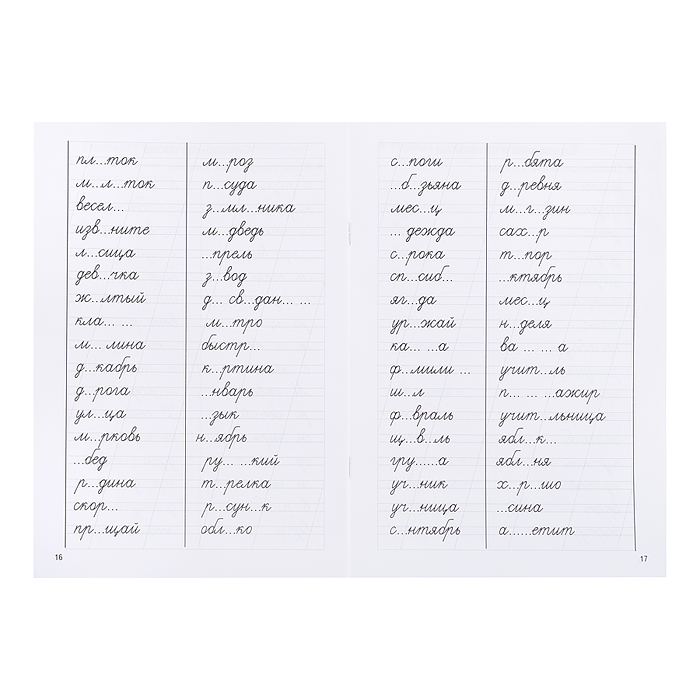 пл...ток
м...л...ток
весел...
изв...ните
л...сица
дев...чка
ж...лтый
кла... ...
м... лина
д...кабрь
д...рога
ул...ца
м...рковь
...бед
р...дина
скор...
пр...щай
м...роз
п...суда
з...мл...ника
м...дведь
...прель
з...вод
д... св...дан... ...
м...тро
быстр...
к...ртина
...нварь
...зык
н...ябрь
ру... ...кий
т...релка
р...сун...к
обл...ко
16
с...поги
...б...зьяна
мес...ц
... дежда
с...рока
сп...сиб...
яг...да
ур...жай
ка... ...а
ф...мили ...
ш...л
ф...враль
щ...в...ль
гру......а
уч...ник
уч...ница
с...нтябрь
р...бята
д...ревня
м...г...зин
сах...р
т...пор
...ктябрь
мес...ц
н...деля
ва ... ... а
учит...ль
п... ... ...ажир
учит...льница
ябл...к...
ябл...ня
х...р...шо
...сина
а......етит
17